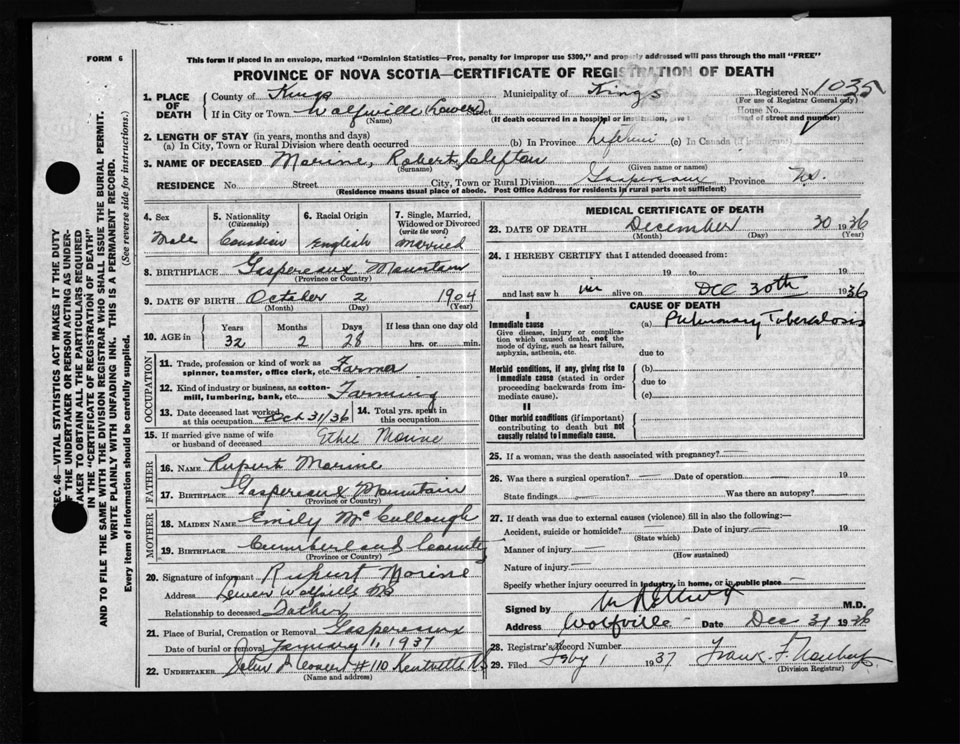 FORM 6
This form if placed in an envelope, marked "Dominion Statistics—Free, penalty for improper use $300," and properly addressed will pass through the mail "FREE"
PROVINCE OF NOVA SCOTIA—CERTIFICATE OF REGISTRATION OF DEATH
1. PLACE OF DEATH
County of Kings Municipality of Kings Registered No. 1035
(For use of Registrar General only)
If in City or Town Wolfville (Lower) Street House No.
(Name) (If death occurred in a hospital or institution, give instead of street and number)
2. LENGTH OF STAY (in years, months and days)
(a) In City, Town or Rural Division where death occurred (b) In Province Lifetime (c) In Canada (if immigrant)
3. NAME OF DECEASED Marine, Robert Clifton
(Surname) (Given name or names)
RESIDENCE No. Street City, Town or Rural Division Gaspereaux Province N.S.
(Residence means usual place of abode. Post Office Address for residents in rural parts not sufficient)
4. Sex Male
5. Nationality (Citizenship) Canadian
6. Racial Origin English
7. Single, Married, Widowed or Divorced (write the word) Married
8. BIRTHPLACE Gaspereaux Mountain
(Province or Country)
9. DATE OF BIRTH October 2 1904
(Month) (Day) (Year)
10. AGE in Years 32 Months 2 Days 28 If less than one day old hrs. or min.
OCCUPATION
11. Trade, profession or kind of work as spinner, teamster, office clerk, etc. Farmer
12. Kind of industry or business, as cotton-mill, lumbering, bank, etc. Farming
13. Date deceased last worked at this occupation Oct 31/36
14. Total yrs. spent in this occupation
15. If married give name of wife or husband of deceased Ethel Marine
FATHER
16. NAME Rupert Marine
17. BIRTHPLACE Gaspereaux Mountain
(Province or Country)
MOTHER
18. MAIDEN NAME Emily McCullough
19. BIRTHPLACE Cumberland County
(Province or Country)
20. Signature of informant Rupert Marine
Address Lower Wolfville NS
Relationship to deceased Father
21. Place of Burial, Cremation or Removal Gaspereaux
Date of burial or removal January 1, 1937
22. UNDERTAKER John #110 Kentville NS
(Name and address)
MEDICAL CERTIFICATE OF DEATH
23. DATE OF DEATH December 30 1936
(Month) (Day) (Year)
24. I HEREBY CERTIFY that I attended deceased from:
19 to 19
and last saw h im alive on Dec 30th 1936
CAUSE OF DEATH
I
Immediate cause (a) Pulmonary Tuberculosis
Give disease, injury or complication which caused death, not the mode of dying, such as heart failure, asphyxia, asthenia, etc.
due to
Morbid conditions, if any, giving rise to immediate cause (stated in order proceeding backwards from immediate cause).
(b)
due to
(c)
II
Other morbid conditions (if important) contributing to death but not causally related to immediate cause.
25. If a woman, was the death associated with pregnancy?
26. Was there a surgical operation? — Date of operation — 19
State findings Was there an autopsy?
27. If death was due to external causes (violence) fill in also the following:—
Accident, suicide or homicide? — Date of injury — 19
(State which)
Manner of injury —
(How sustained)
Nature of injury —
Specify whether injury occurred in industry, in home, or in public place —
Signed by M.D.
Address Wolfville - Date Dec 31 1936
28. Registrar's Record Number
29. Filed Feby 1 1937 Frank F.
(Division Registrar)
SEC. 46—VITAL STATISTICS ACT MAKES IT THE DUTY
OF THE UNDERTAKER OR PERSON ACTING AS UNDER-
TAKER TO OBTAIN ALL THE PARTICULARS REQUIRED
IN THE "CERTIFICATE OF REGISTRATION OF DEATH"
AND TO FILE THE SAME WITH THE DIVISION REGISTRAR WHO SHALL ISSUE THE BURIAL PERMIT.
WRITE PLAINLY WITH UNFADING INK. THIS IS A PERMANENT RECORD.
Every item of information should be carefully supplied. (See reverse side for instructions.)